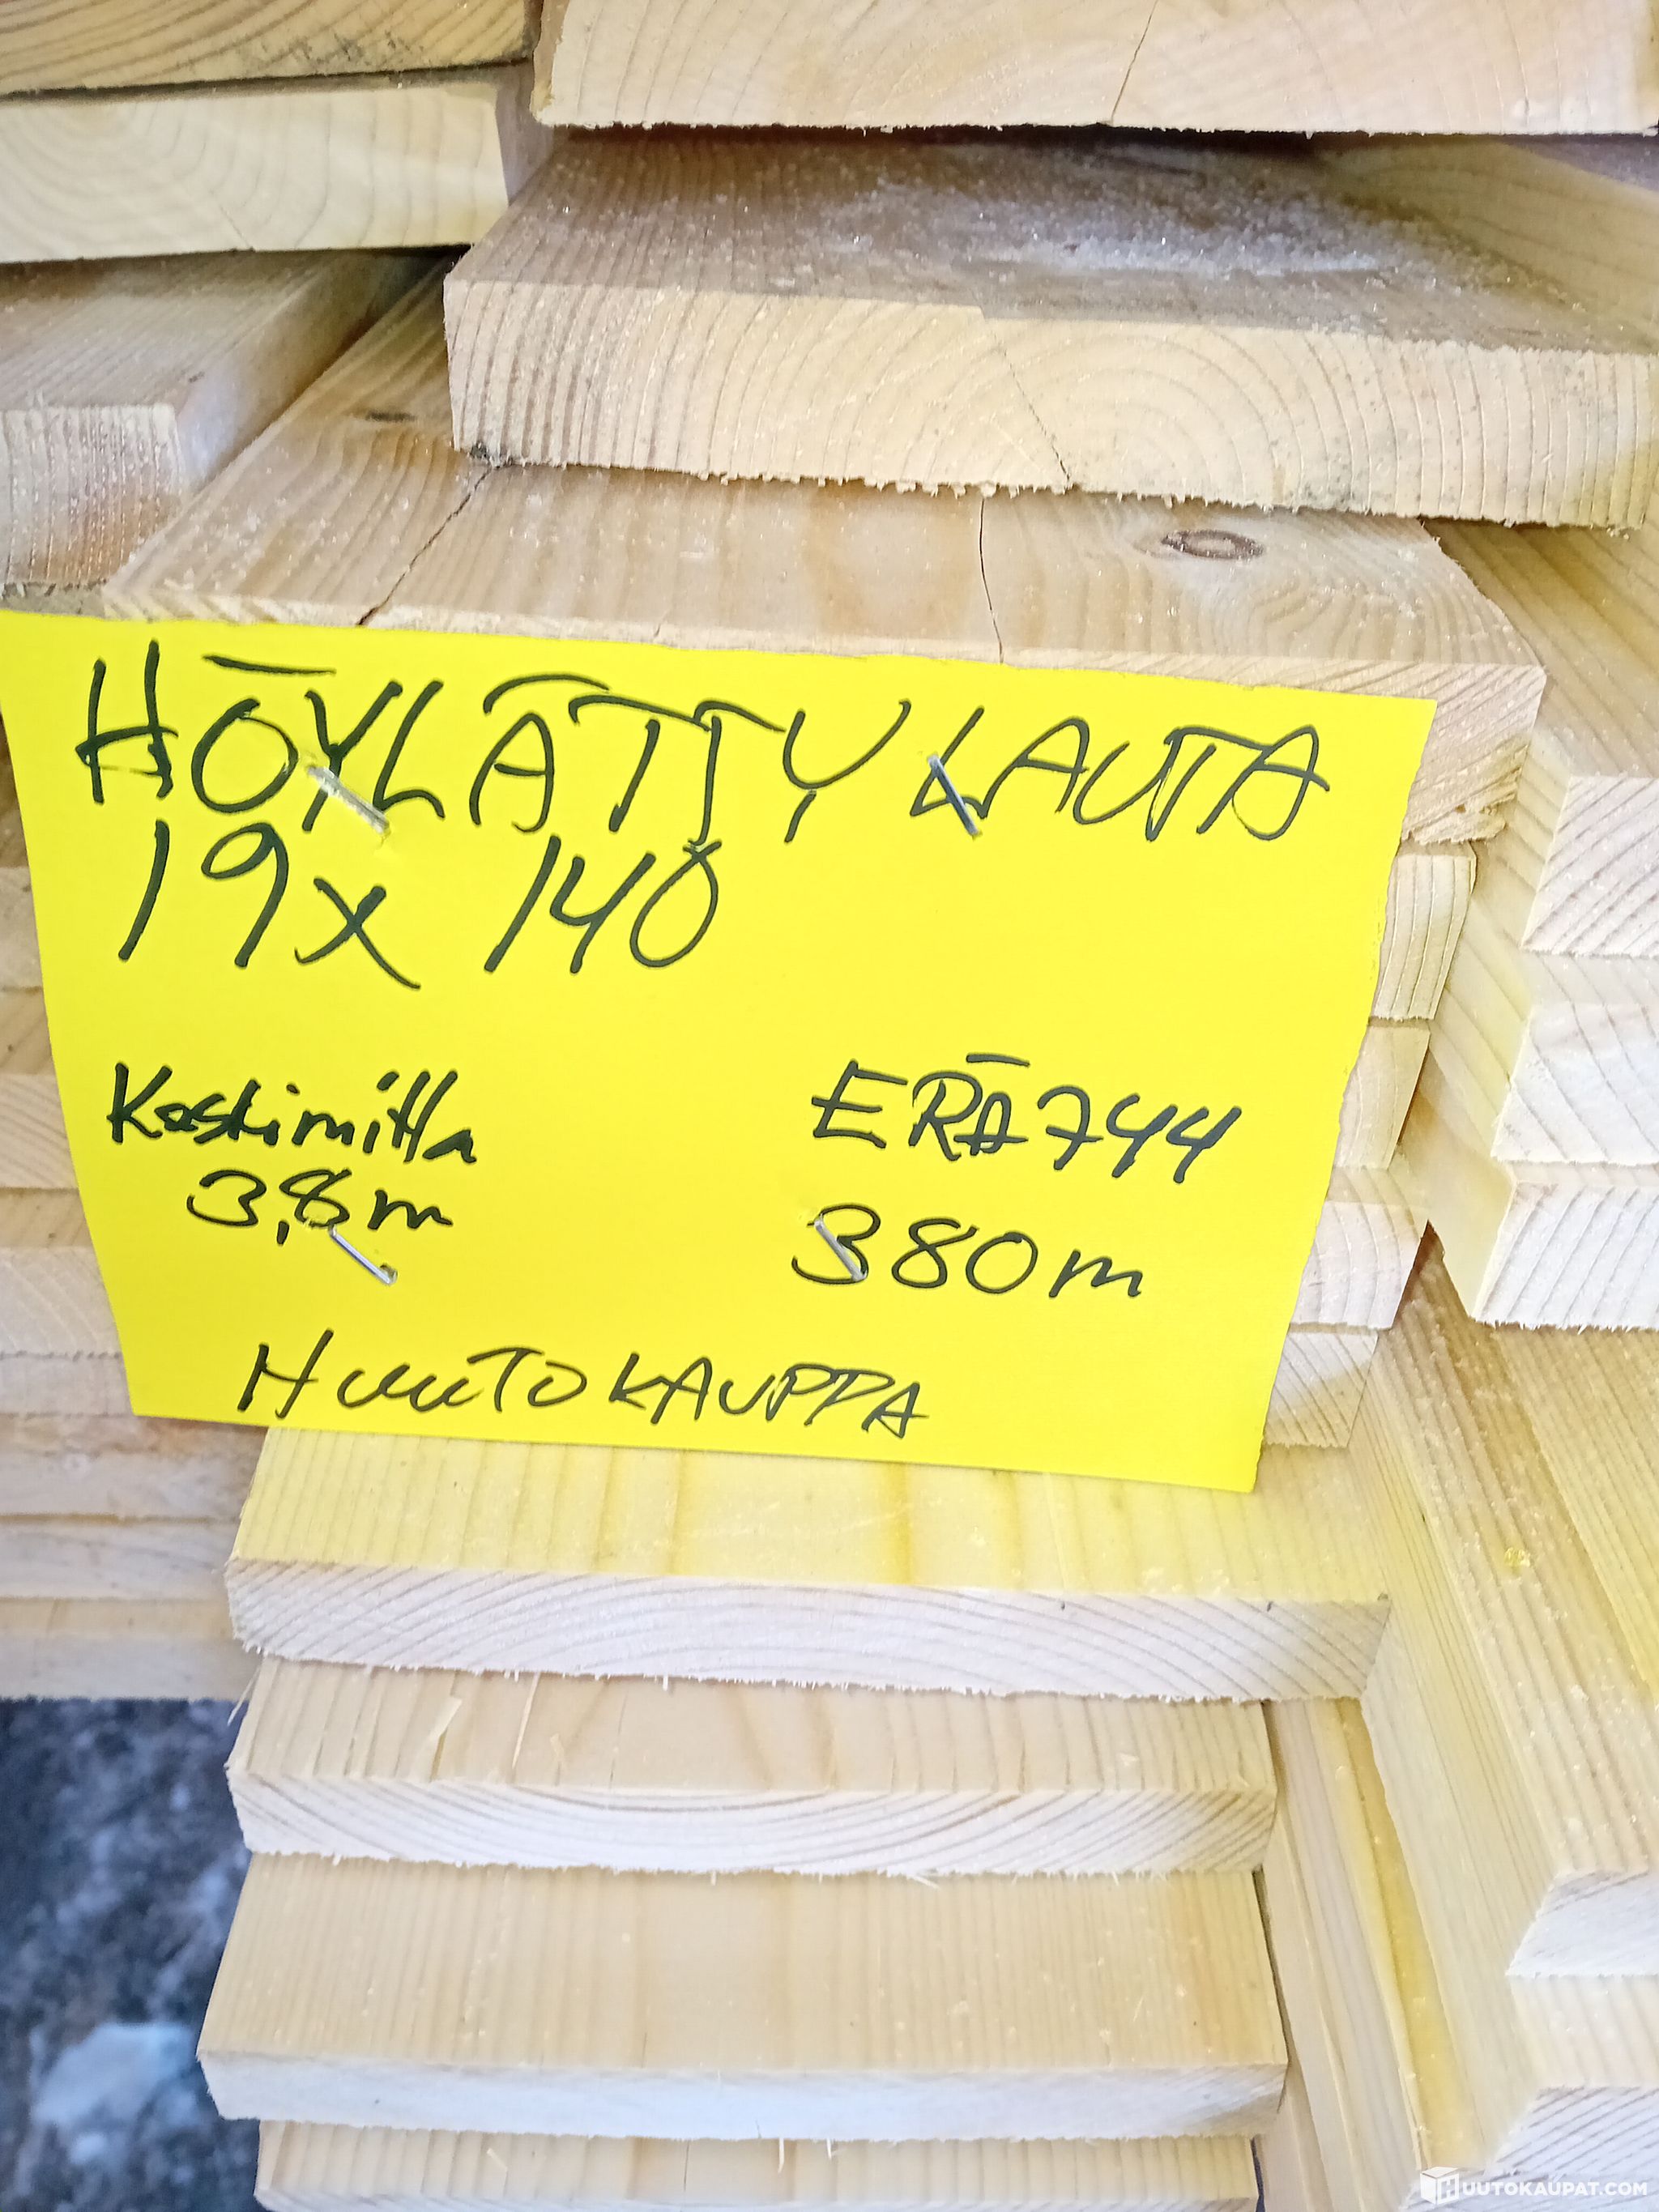 HÖYLÄTTY LAUTA
19x 140
Keskimitta
3,8m
ERÄ 744
380m
HUUTOKAUPPA
HUUTOKAUPAT.COM